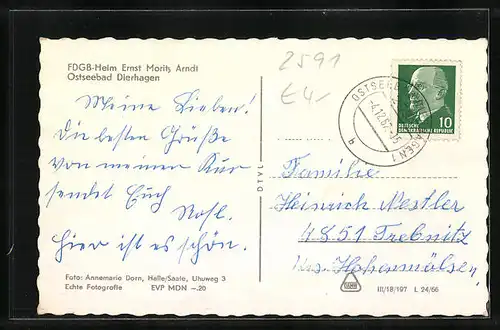 FDGB-Heim Ernst Moritz Arndt
Ostseebad Dierhagen
2591
€4,-
Meine Lieben!
Die besten Grüße
von meiner Kur
sendet Euch
Rosl.
Hier ist es schön.
Foto: Annemarie Dorn, Halle/Saale, Uhuweg 3
Echte Fotografie EVP MDN –.20
DTVL
10
DEUTSCHE
DEMOKRATISCHE REPUBLIK
Familie
Heinrich Nestler
4851 Trebnitz
Krs. Hohenmölsen
III/18/197 L 24/66